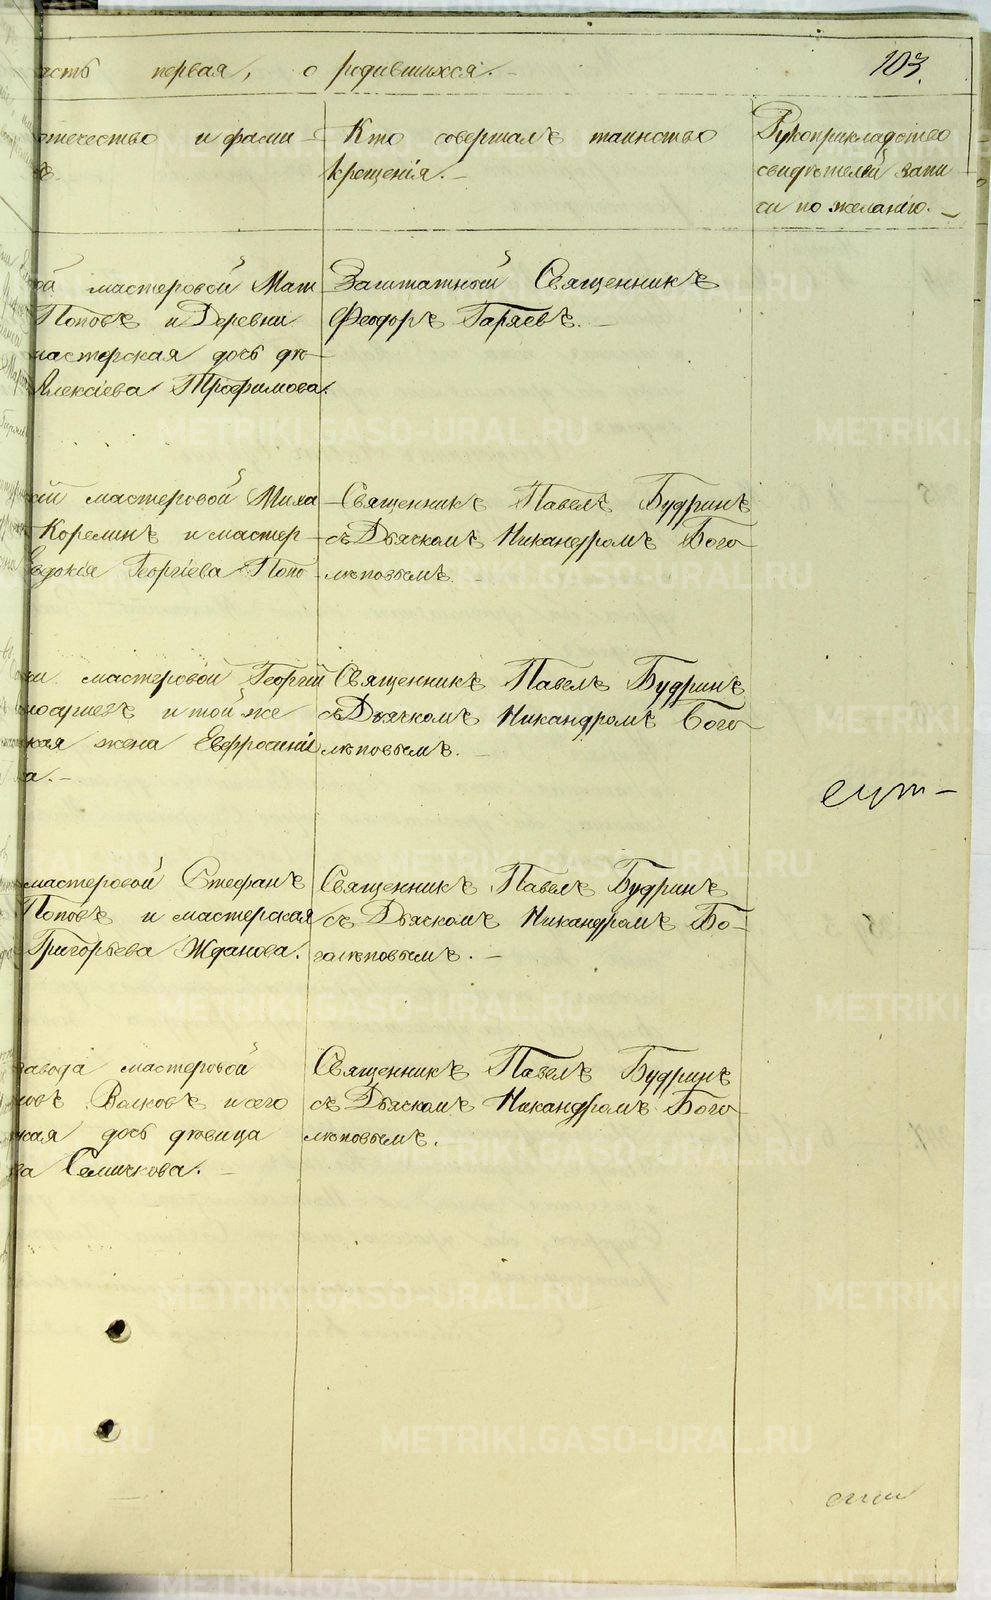 асть первая, о родившихся.
103.
отечество и фами-
Кто совершалъ таинство
крещенія.
Рукоприкладство
свидѣтелей запи
си по желанію.
ой мастеровой Мат
Поповъ и Деревни
мастерская дочь дѣ-
Алексіева Трофимова.
Заштатной Священникъ
Феодоръ Гаряевъ.
кій мастеровой Миха
Корелинъ и мастер-
Евдокія Георгіева Попо
Священникъ Павелъ Будринъ
съ Дьячкомъ Никандромъ Бого
лѣповымъ.
мастеровой Георгій
и той же
кая жена Евфросинія
а.
Священникъ Павелъ Будринъ
съ Дьячкомъ Никандромъ Бого
лѣповымъ.
мастеровой Стефанъ
Поповъ и мастерская
Григорьева Жданова.
Священникъ Павелъ Будринъ
съ Дьячкомъ Никандромъ Бо-
голѣповымъ.
завода мастеровой
овъ Волковъ и сего
кая дочь дѣвица
ва Семичкова.
Священникъ Павелъ Будринъ
съ Дьячкомъ Никандромъ Бого
лѣповымъ.
METRIKI.GASO-URAL.RU